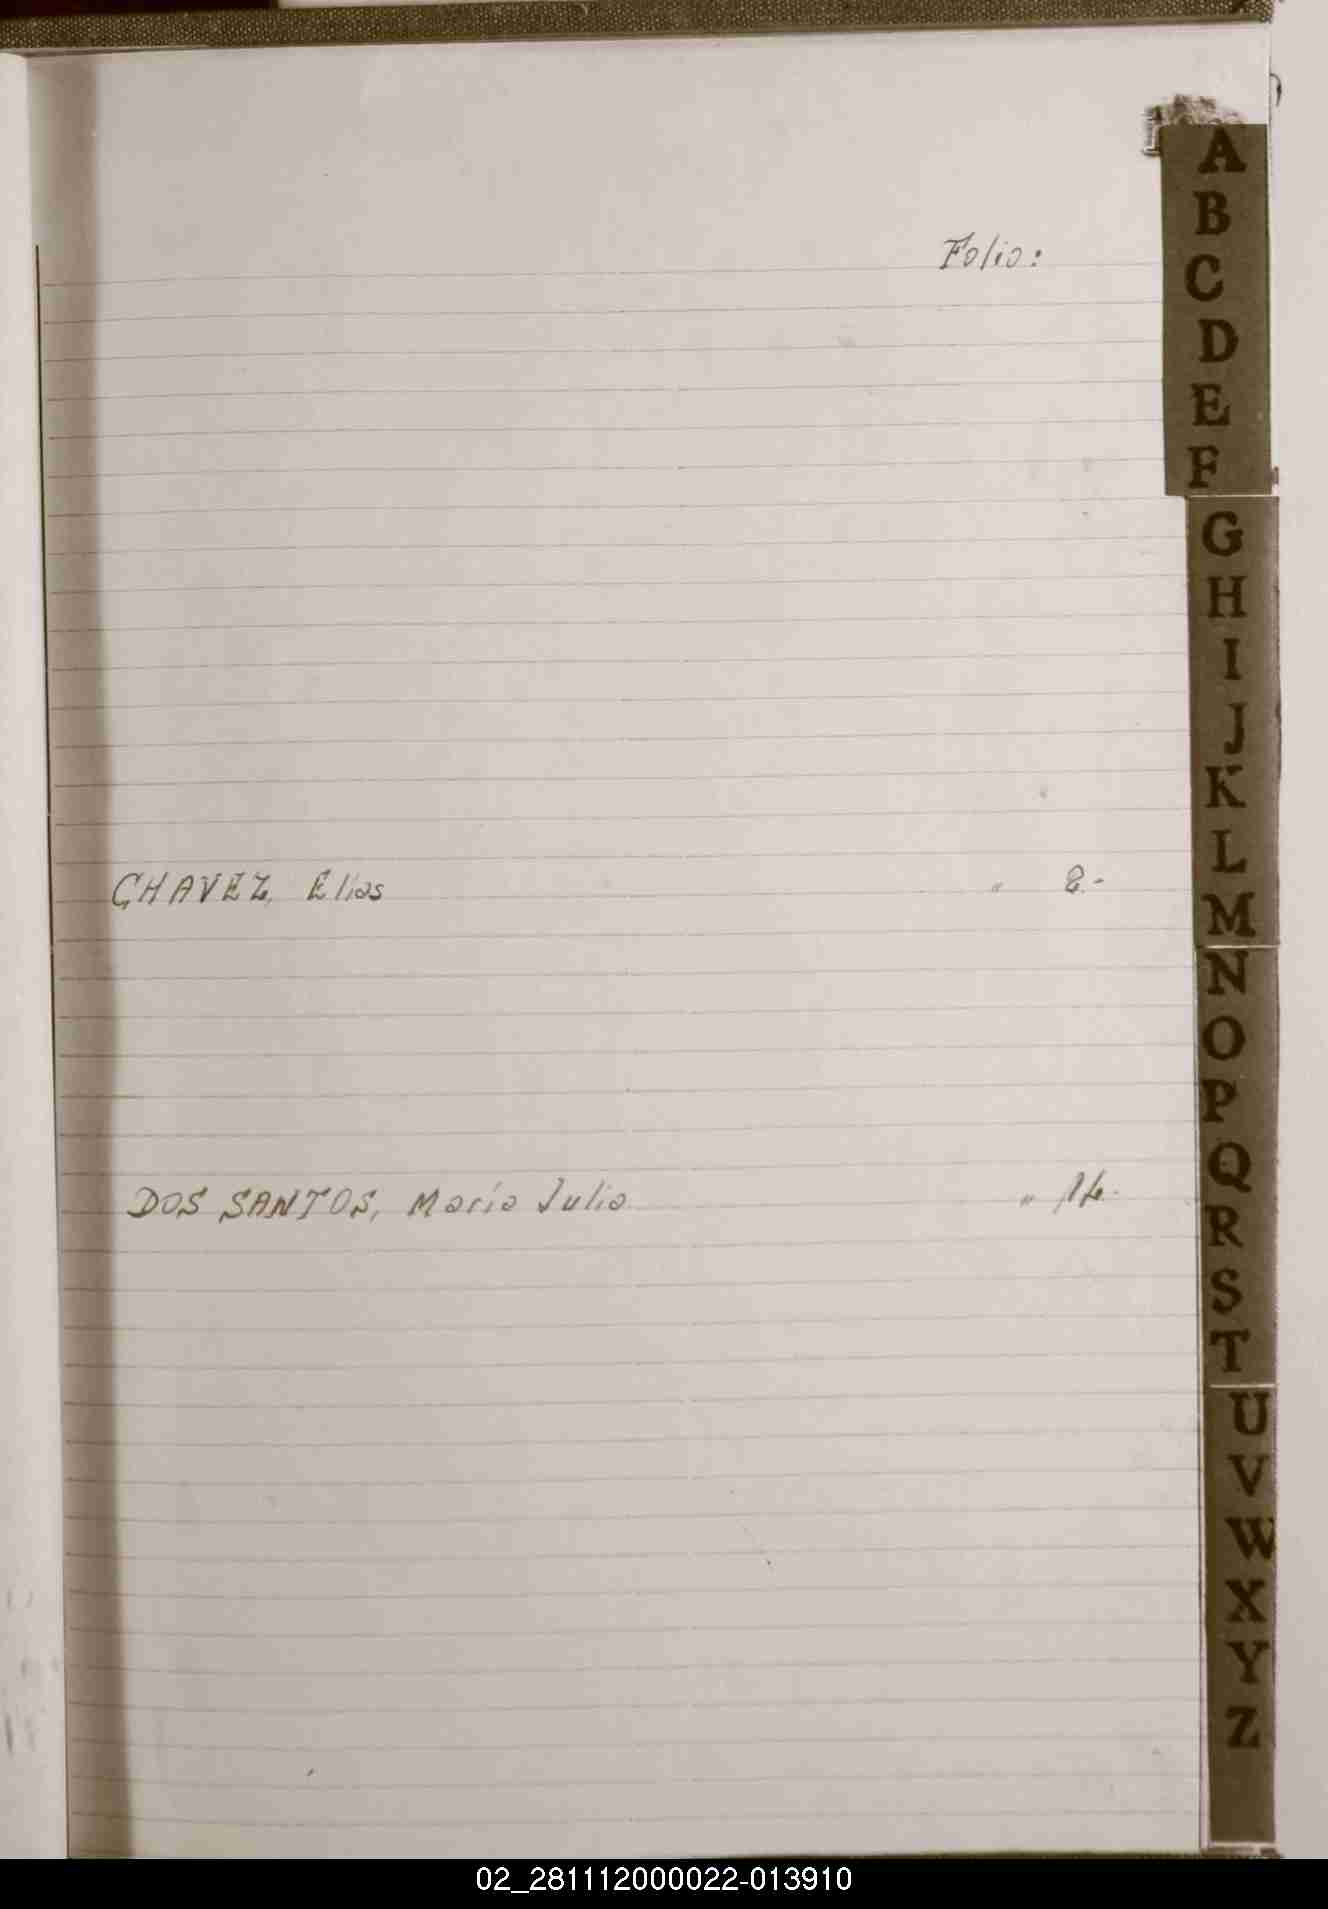 Folio:
CHAVEZ, Elias " 2.-
DOS SANTOS, Maria Julia "
A
B
C
D
E
F
G
H
I
J
K
L
M
N
O
P
Q
R
S
T
U
V
W
X
Y
Z
02_281112000022-013910